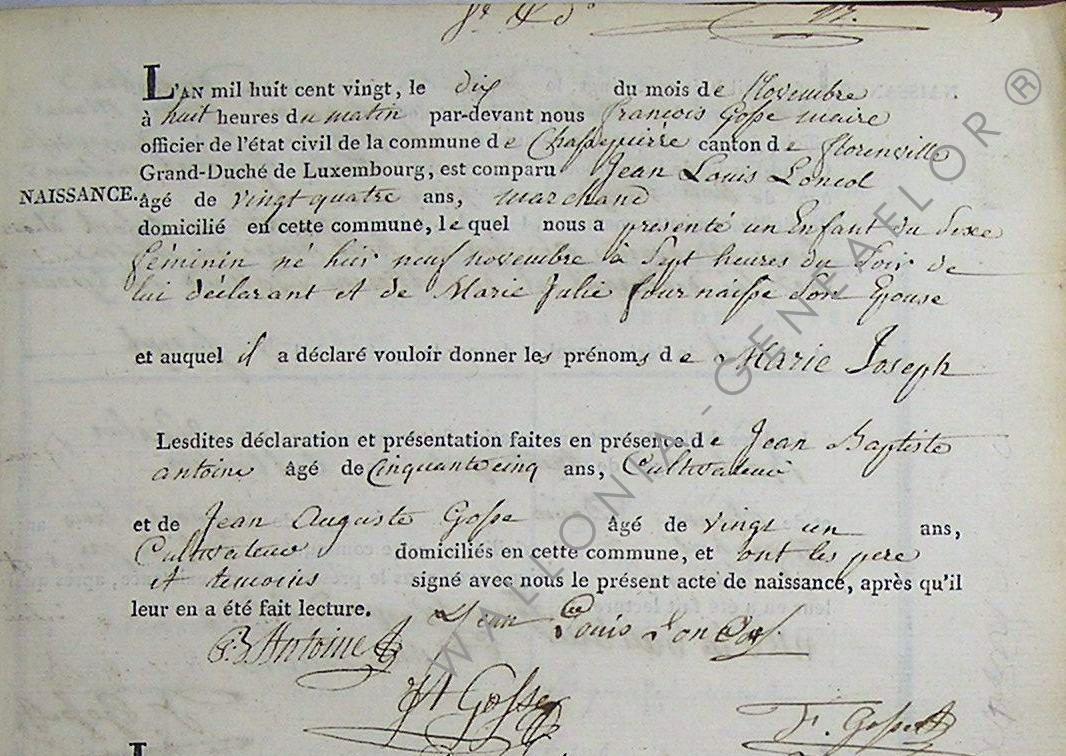 L'AN mil huit cent vingt, le dix du mois de Novembre
à huit heures du matin par-devant nous françois Gosse maire
officier de l'état civil de la commune de Chassepierre canton de florenville
Grand-Duché de Luxembourg, est comparu Jean Louis Loncol
NAISSANCE. âgé de vingt quatre ans, marchand
domicilié en cette commune, le quel nous a présenté un Enfant du Sexe
féminin né hier neuf novembre à Sept heures du Soir de
lui déclarant et de Marie Julie fournaisse Son Epouse
et auquel il a déclaré vouloir donner les prénoms de Marie Joseph
Lesdites déclaration et présentation faites en présence de Jean Baptiste
antoine âgé de Cinquante cinq ans, Cultivateur
et de Jean Auguste Gosse âgé de vingt un ans,
Cultivateur domiciliés en cette commune, et ont les pere
et temoins signé avec nous le présent acte de naissance, après qu'il
leur en a été fait lecture. Jean Louis Loncol
Antoine
JA Gosse
F. Gosse
WALLONIA - GENEAELOR ®